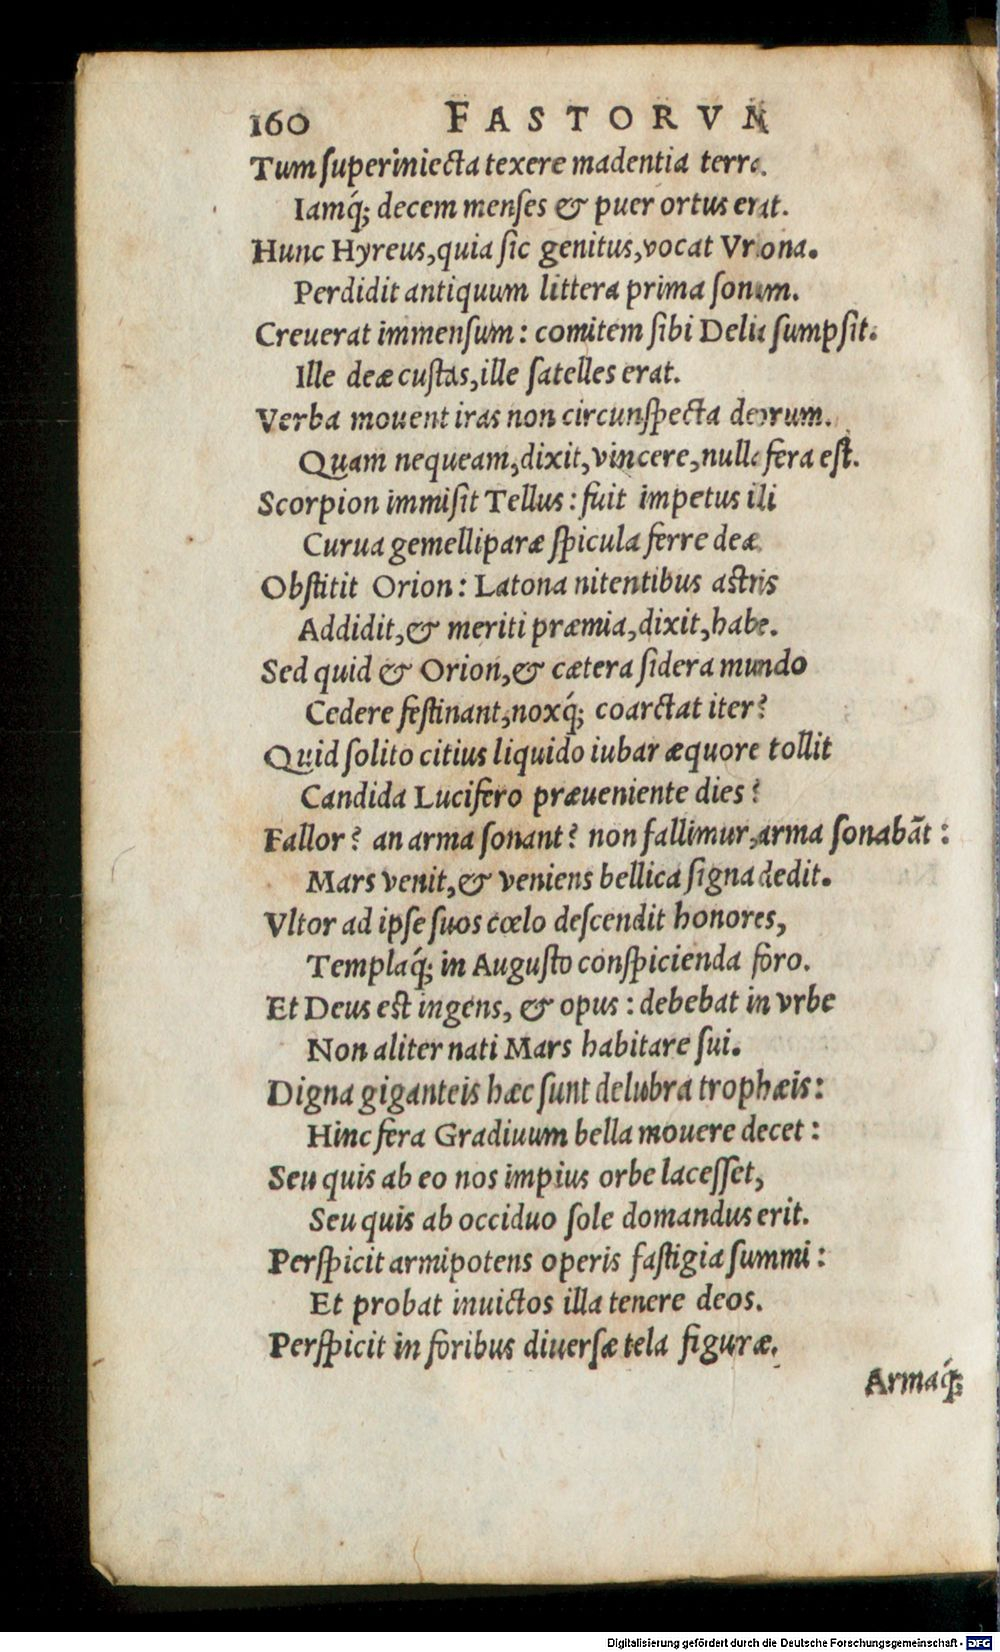 160 FASTORVM
Tum ſuperiniecta texere madentia terra.
Iamq́; decem menſes & puer ortus erat.
Hunc Hyreus, quia ſic genitus, vocat Vriona.
Perdidit antiquum littera prima ſonum.
Creuerat immenſum: comitem ſibi Delia ſumpſit.
Ille deæ cuſtos, ille ſatelles erat.
Verba mouent iras non circunſpecta deorum.
Quam nequeam, dixit, vincere, nulla fera eſt.
Scorpion immiſit Tellus: fuit impetus illi
Curua gemelliparæ ſpicula ferre deæ.
Obſtitit Orion: Latona nitentibus aſtris
Addidit, & meriti præmia, dixit, habe.
Sed quid & Orion, & cætera ſidera mundo
Cedere feſtinant, noxq́; coarctat iter?
Quid ſolito citius liquido iubar æquore tollit
Candida Lucifero præueniente dies?
Fallor? an arma ſonant? non fallimur, arma ſonabāt:
Mars venit, & veniens bellica ſigna dedit.
Vltor ad ipſe ſuos cœlo deſcendit honores,
Templaq́; in Auguſto conſpicienda foro.
Et Deus eſt ingens, & opus: debebat in vrbe
Non aliter nati Mars habitare ſui.
Digna giganteis hæc ſunt delubra trophæis:
Hinc fera Gradiuum bella mouere decet:
Seu quis ab eo nos impius orbe laceſſet,
Seu quis ab occiduo ſole domandus erit.
Perſpicit armipotens operis faſtigia ſummi:
Et probat inuictos illa tenere deos.
Perſpicit in foribus diuerſæ tela figuræ.
Armaq́;
Digitalisierung gefördert durch die Deutsche Forschungsgemeinschaft - DFG